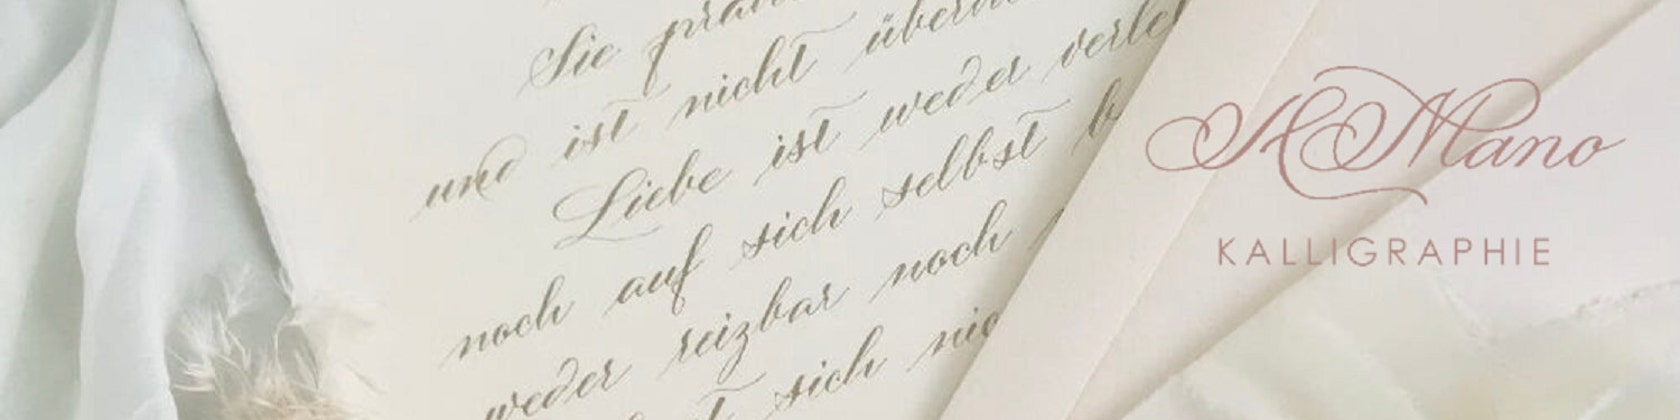 Sie
und ist nicht
Liebe ist weder
noch auf sich selbst
weder reizbar noch
sich
A Mano
KALLIGRAPHIE